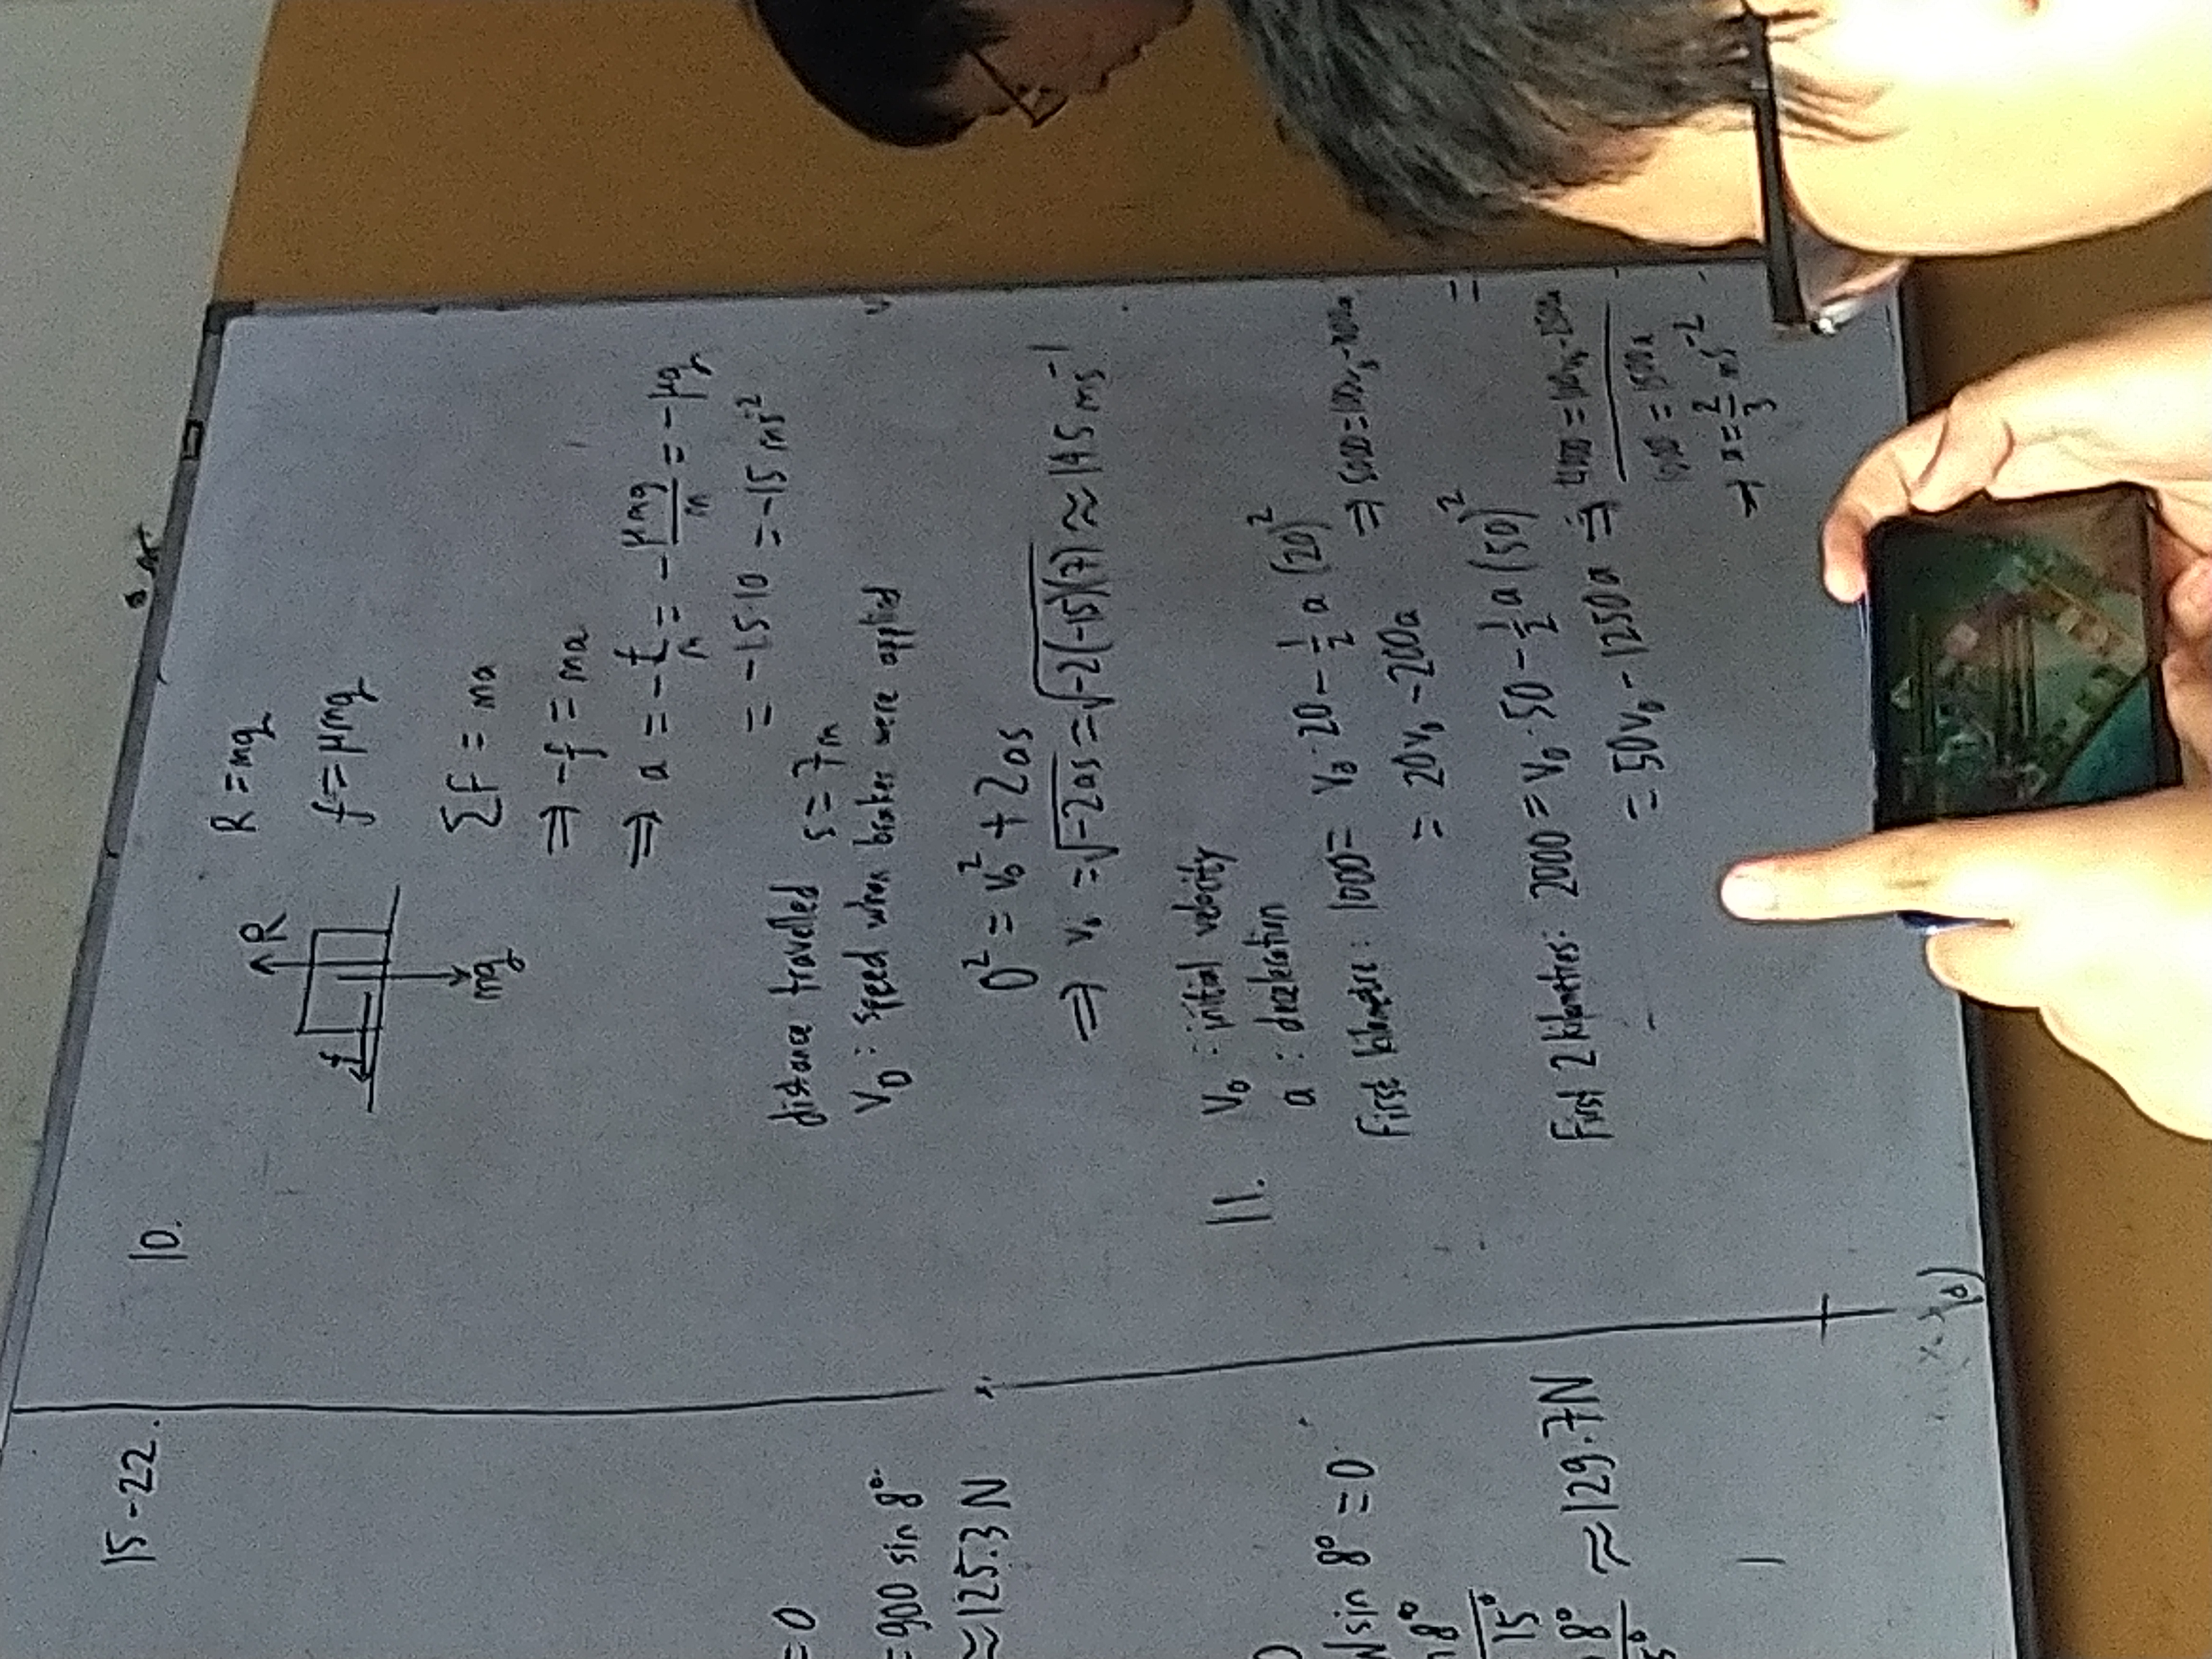 15-22.
= 0
= 900 sin 8°
≈ 125.3 N
W sin 8° = 0
8°
15°
8°
≈ 129.7 N
10.
R
f
mg
R = mg
f = μmg
ΣF = ma
⇒ -f = ma
⇒ a = -f/m = -μmg/m = -μg
= -1.5·10 = -15 ms⁻²
distance travelled s = 7m
V₀ : speed when brakes were applied
0² = v₀² + 2as
⇒ v₀ = √-2as = √-2(-15)(7) ≈ 14.5 ms⁻¹
11. V₀ : initial velocity
a : deceleration
First kilometre : 1000 = v₀·20 - 1/2 a (20)²
= 20v₀ - 200a ⇒ 5000 = 100v₀ - 1000a
First 2 kilometres: 2000 = v₀·50 - 1/2 a (50)²
= 50v₀ - 1250a ⇒ 4000 = 100v₀ - 2500a
1000 = 1500a
→ a = 2/3 ms⁻²